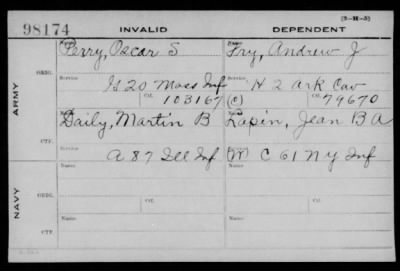 (3-H-5)
98174 INVALID DEPENDENT
Name Name
Perry, Oscar S Fry, Andrew J
ORIG.
Service Service
G 20 Mass Inf H 2 Ark Cav
Ctf. Ctf.
103167 (C) 79670
ARMY
Daily, Martin B Lapin, Jean B A
CTF.
Service
A 87 Ill Inf (M) C 61 N Y Inf
Name Name
ORIG.
Service Ctf. Service Ctf.
NAVY
Name Name
CTF.
Service Service